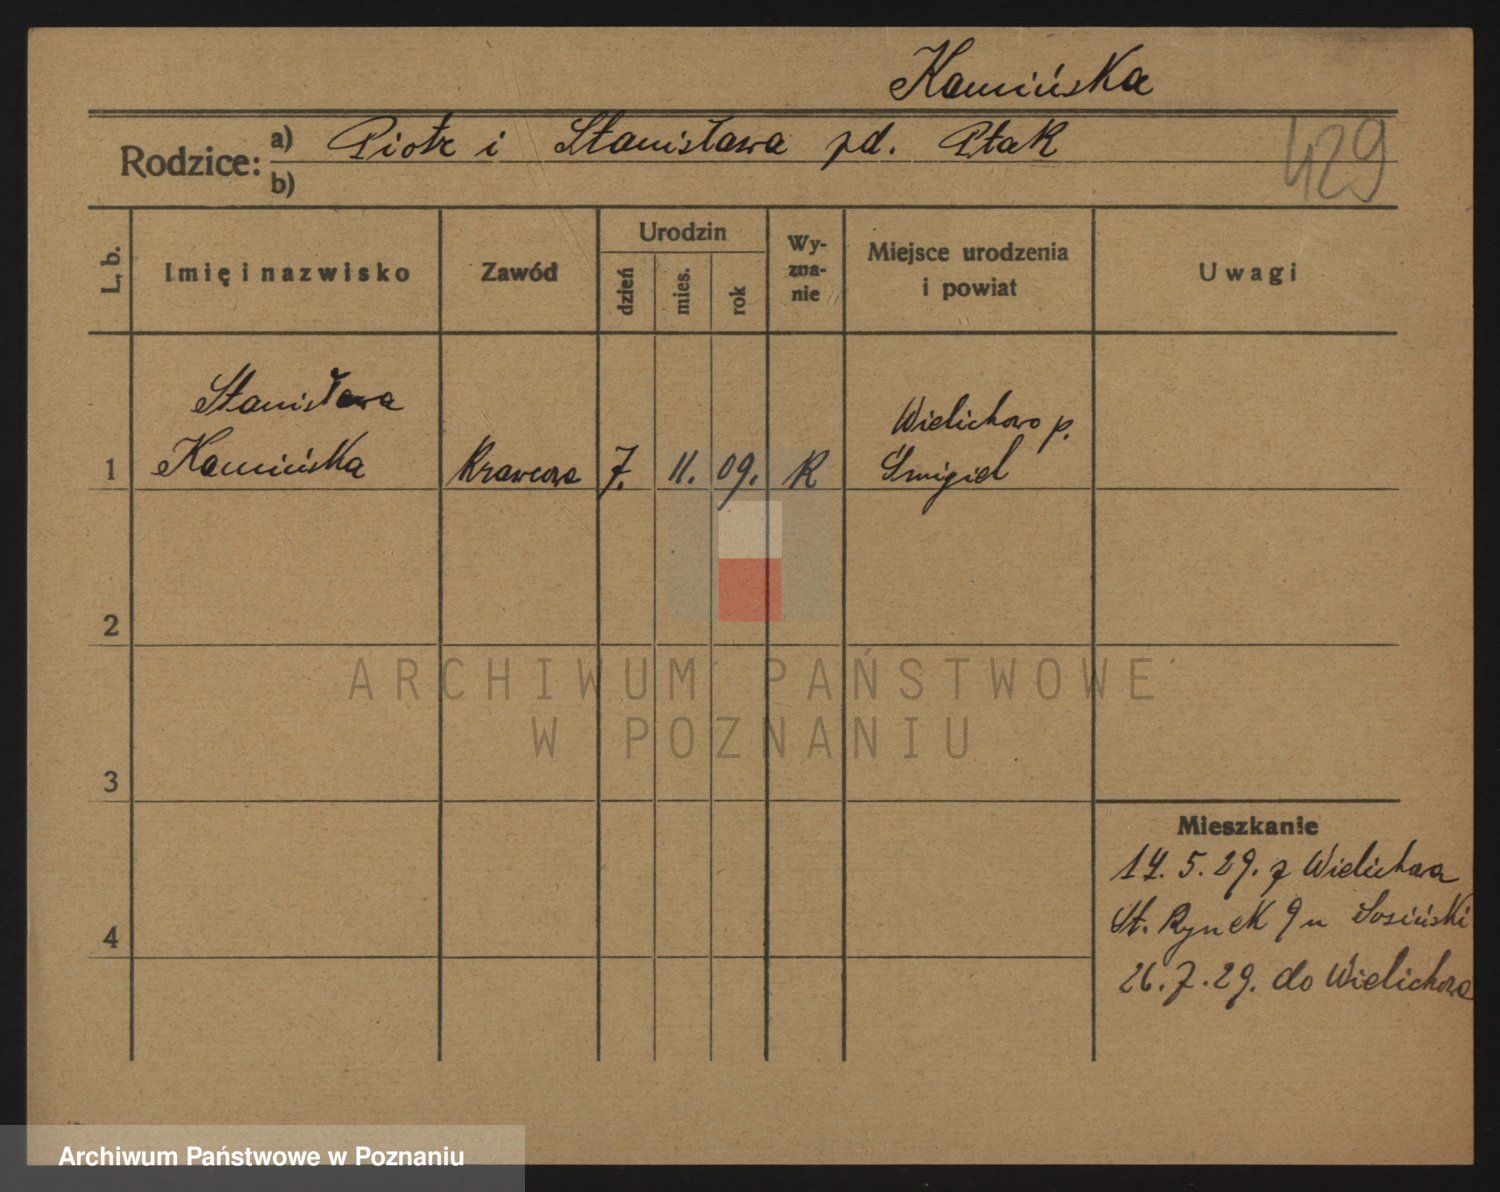 Kamińska
Rodzice: a) Piotr i Stanisława zd. Ptak
b)
429
L. b.
Imię i nazwisko
Zawód
Urodzin
dzień
mies.
rok
Wy-
zna-
nie
Miejsce urodzenia
i powiat
Uwagi
Stanisława
1 Kamińska Krawcowa 7. 11. 09. R
Wielichowo p.
Śmigiel
2
3
4
ARCHIWUM PAŃSTWOWE
W POZNANIU
Mieszkanie
14. 5. 29. z Wielichowa
St. Rynek 9 u Łosiński
26. 7. 29. do Wielichowa
Archiwum Państwowe w Poznaniu